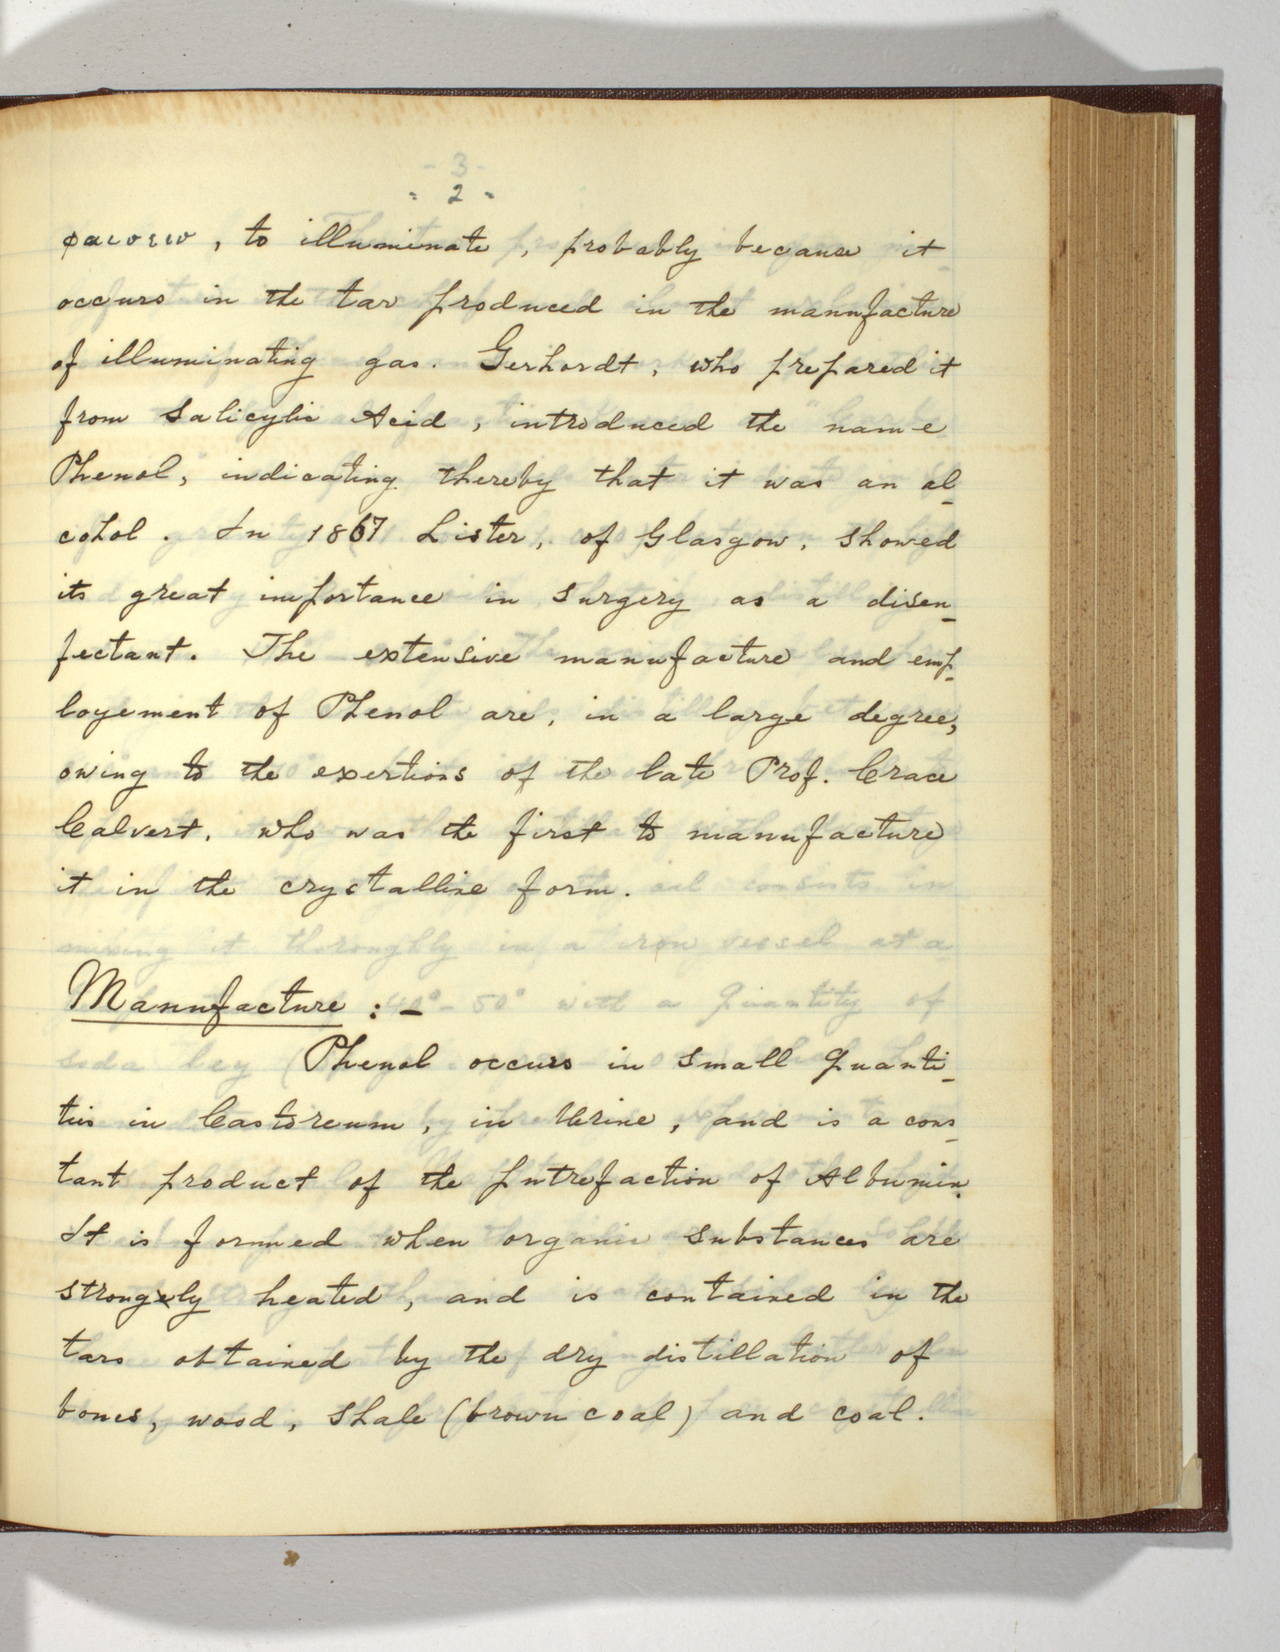 - 2 -
φαινειν, to illuminate, probably because it
occurs in the tar produced in the manufacture
of illuminating gas. Gerhordt, who prepared it
from Salicylic Acid, introduced the name
Phenol, indicating thereby that it was an al-
cohol. In 1867 Lister, of Glasgow, showed
its great importance in surgery as a disen-
fectant. The extensive manufacture and emp-
loyement of Phenol are, in a large degree,
owing to the exertions of the late Prof. Crace
Calvert, who was the first to manufacture
it in the crystalline form.
Manufacture :-
Phenol occurs in small quanti-
ties in Castoreum, in Urine, and is a cons-
tant product of the putrefaction of Albumin.
It is formed when organic substances are
strongly heated, and is contained in the
tars obtained by the dry distillation of
bones, wood, shale (brown coal) and coal.